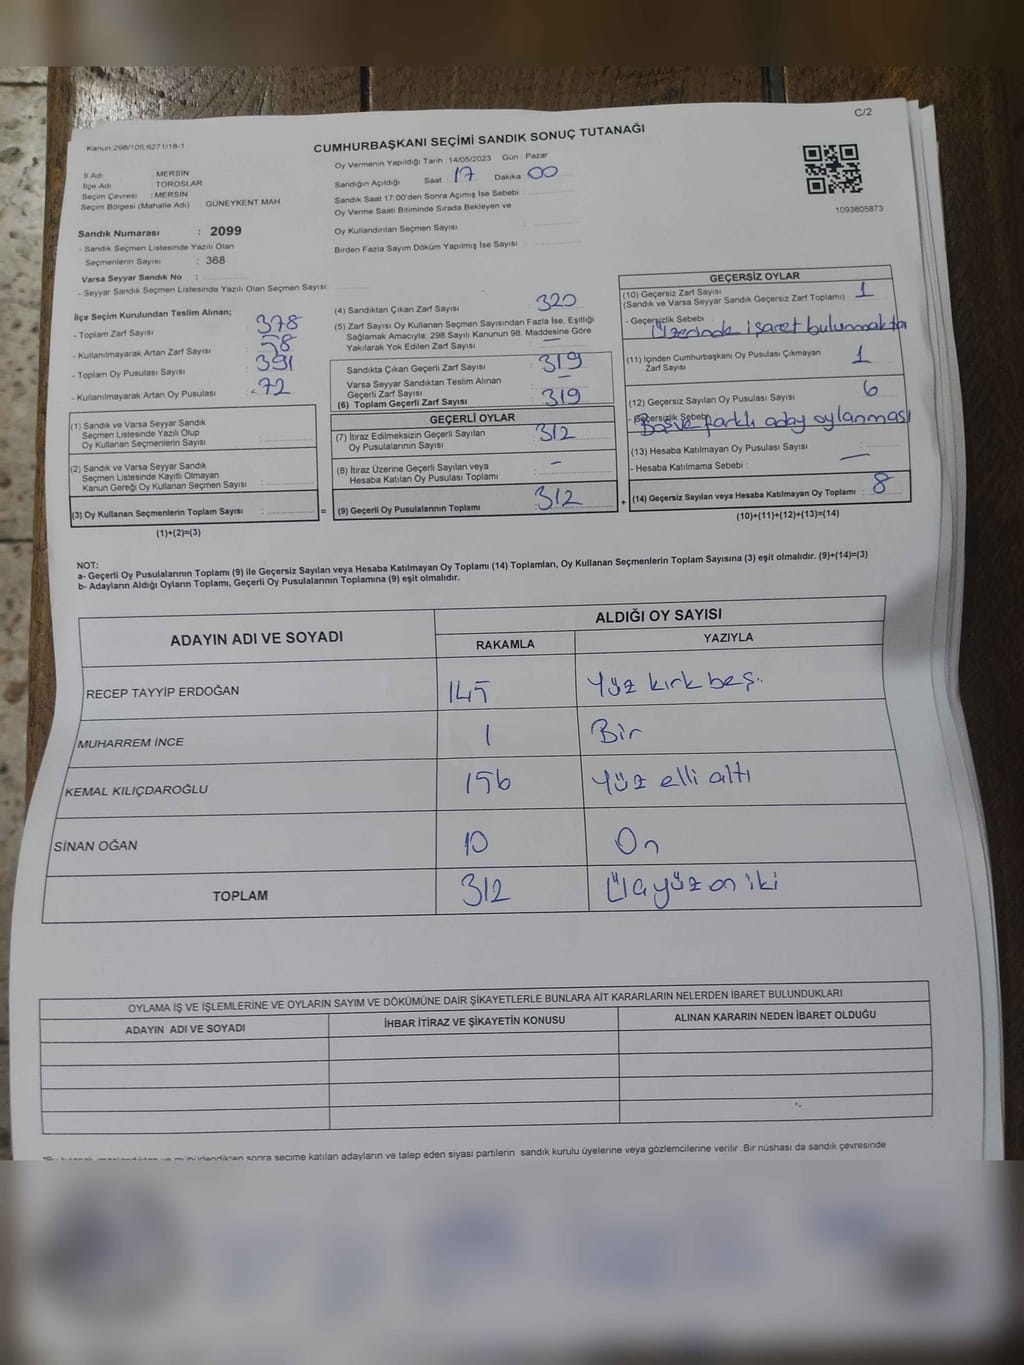 C/2
Kanun:298/105,6271/18-1
CUMHURBAŞKANI SEÇİMİ SANDIK SONUÇ TUTANAĞI
İl Adı : MERSİN
İlçe Adı : TOROSLAR
Seçim Çevresi : MERSİN
Seçim Bölgesi (Mahalle Adı) GÜNEYKENT MAH
Sandık Numarası : 2099
- Sandık Seçmen Listesinde Yazılı Olan
Seçmenlerin Sayısı : 368
Varsa Seyyar Sandık No :
- Seyyar Sandık Seçmen Listesinde Yazılı Olan Seçmen Sayısı:
Oy Vermenin Yapıldığı Tarih 14/05/2023 Gün : Pazar
Sandığın Açıldığı Saat 17 Dakika 00
Sandık Saat 17:00'den Sonra Açımış İse Sebebi :
Oy Verme Saati Bitiminde Sırada Bekleyen ve
Oy Kullandırılan Seçmen Sayısı :
Birden Fazla Sayım Döküm Yapılmış İse Sayısı :
1093805873
İlçe Seçim Kurulundan Teslim Alınan;
- Toplam Zarf Sayısı : 378
- Kullanılmayarak Artan Zarf Sayısı : 58
- Toplam Oy Pusulası Sayısı : 391
- Kullanılmayarak Artan Oy Pusulası : 72
(1) Sandık ve Varsa Seyyar Sandık
Seçmen Listesinde Yazılı Olup
Oy Kullanan Seçmenlerin Sayısı :
(2) Sandık ve Varsa Seyyar Sandık
Seçmen Listesinde Kayıtlı Olmayan
Kanun Gereği Oy Kullanan Seçmen Sayısı :
(3) Oy Kullanan Seçmenlerin Toplam Sayısı : =
(1)+(2)=(3)
(4) Sandıktan Çıkan Zarf Sayısı : 320
(5) Zarf Sayısı Oy Kullanan Seçmen Sayısından Fazla İse, Eşitliği
Sağlamak Amacıyla; 298 Sayılı Kanunun 98. Maddesine Göre
Yakılarak Yok Edilen Zarf Sayısı : —
Sandıkta Çıkan Geçerli Zarf Sayısı : 319
Varsa Seyyar Sandıktan Teslim Alınan
Geçerli Zarf Sayısı : —
(6) Toplam Geçerli Zarf Sayısı : 319
GEÇERLİ OYLAR
(7) İtiraz Edilmeksizin Geçerli Sayılan
Oy Pusulalarının Sayısı : 312
(8) İtiraz Üzerine Geçerli Sayılan veya
Hesaba Katılan Oy Pusulası Toplamı : —
(9) Geçerli Oy Pusulalarının Toplamı : 312 +
GEÇERSİZ OYLAR
(10) Geçersiz Zarf Sayısı
(Sandık ve Varsa Seyyar Sandık Geçersiz Zarf Toplamı) : 1
- Geçersizlik Sebebi :
Üzerinde işaret bulunmakta
(11) İçinden Cumhurbaşkanı Oy Pusulası Çıkmayan
Zarf Sayısı : 1
(12) Geçersiz Sayılan Oy Pusulası Sayısı : 6
- Geçersizlik Sebebi
Boş ve farklı aday oylanması
(13) Hesaba Katılmayan Oy Pusulası Sayısı : —
- Hesaba Katılmama Sebebi :
(14) Geçersiz Sayılan veya Hesaba Katılmayan Oy Toplamı : 8
(10)+(11)+(12)+(13)=(14)
NOT:
a- Geçerli Oy Pusulalarının Toplamı (9) ile Geçersiz Sayılan veya Hesaba Katılmayan Oy Toplamı (14) Toplamları, Oy Kullanan Seçmenlerin Toplam Sayısına (3) eşit olmalıdır. (9)+(14)=(3)
b- Adayların Aldığı Oyların Toplamı, Geçerli Oy Pusulalarının Toplamına (9) eşit olmalıdır.
ADAYIN ADI VE SOYADI
ALDIĞI OY SAYISI
RAKAMLA YAZIYLA
RECEP TAYYİP ERDOĞAN 145 Yüz kırk beş.
MUHARREM İNCE 1 Bir
KEMAL KILIÇDAROĞLU 156 Yüz elli altı
SİNAN OĞAN 10 On
TOPLAM 312 Üçyüz on iki
OYLAMA İŞ VE İŞLEMLERİNE VE OYLARIN SAYIM VE DÖKÜMÜNE DAİR ŞİKAYETLERLE BUNLARA AİT KARARLARIN NELERDEN İBARET BULUNDUKLARI
ADAYIN ADI VE SOYADI İHBAR İTİRAZ VE ŞİKAYETİN KONUSU ALINAN KARARIN NEDEN İBARET OLDUĞU
sonra seçime katılan adayların ve talep eden siyasi partilerin sandık kurulu üyelerine veya gözlemcilerine verilir. Bir nüshası da sandık çevresinde